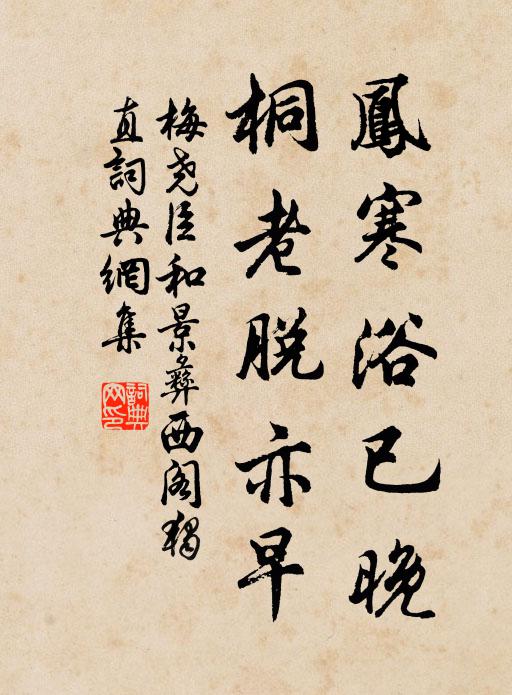 鳳寒浴已晚
桐老脱亦早
梅堯臣和景彝西阁獨
直詞典網集
詞典
网印